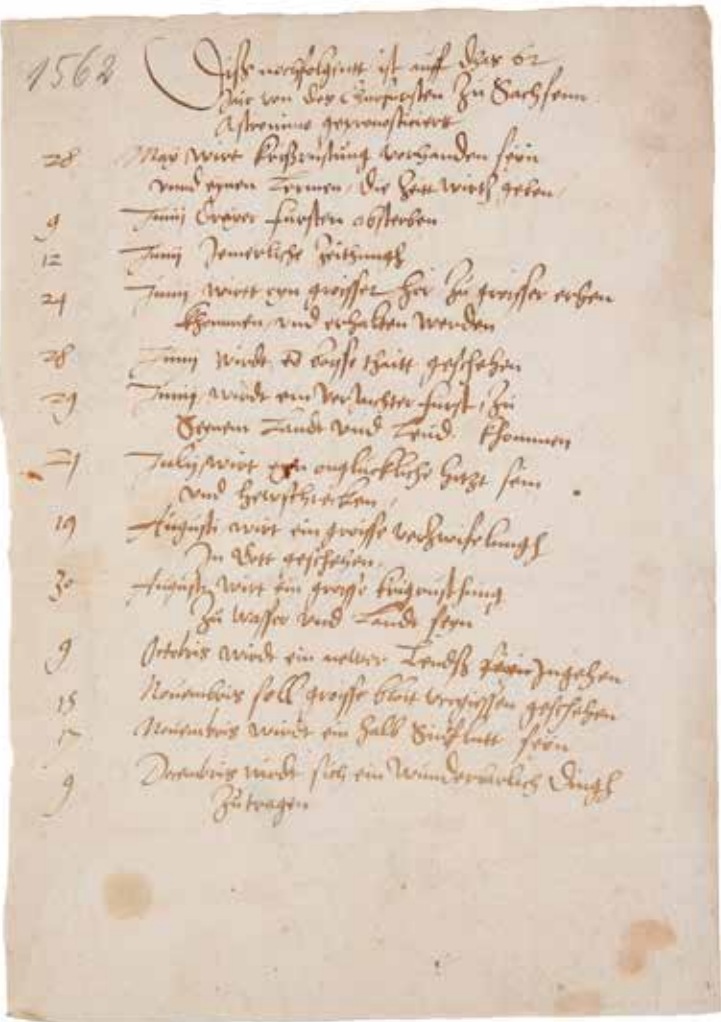 1562
Diss nachfolgentt ist auff dass 62
Jar von des Churfursten Zu Sachsenn
Astronimo gepronosticiert
28 May wirt kriegsrustung vorhanden sein
vnnd eynen Lermen, die Zeit wirth geben
9 Junij Dreyer fursten absterben
12 Junij Jemerliche Zeithungh
24 Junij wirt eyn groisser her Zu groisser ehren
khommen vnd erhalten werden
28 Junij wirdt ein boesse thatt geschehen
29 Junij wirdt ein veriachter furst, Zu
Seynem Landt vnd Leud. khommen
21 Julij wirt eyn ongluckliche hitzt sein
vnd hewschrecken
19 Augusti wirt ein groisse verzwifelungh
In Gott geschehen
30 Augusti wirt ein grosse krigsrusthung
Zu wasser vnd Lande sein
9 Octobris wirdt ein newer angehen
15 Nouembris soll groisse bloit vergiessen geschehen
17 Nouembris wirdt ein halb Sindflutt sein
9 Decembris wirdt sich ein wunderbarlich Dingh
Zutragen